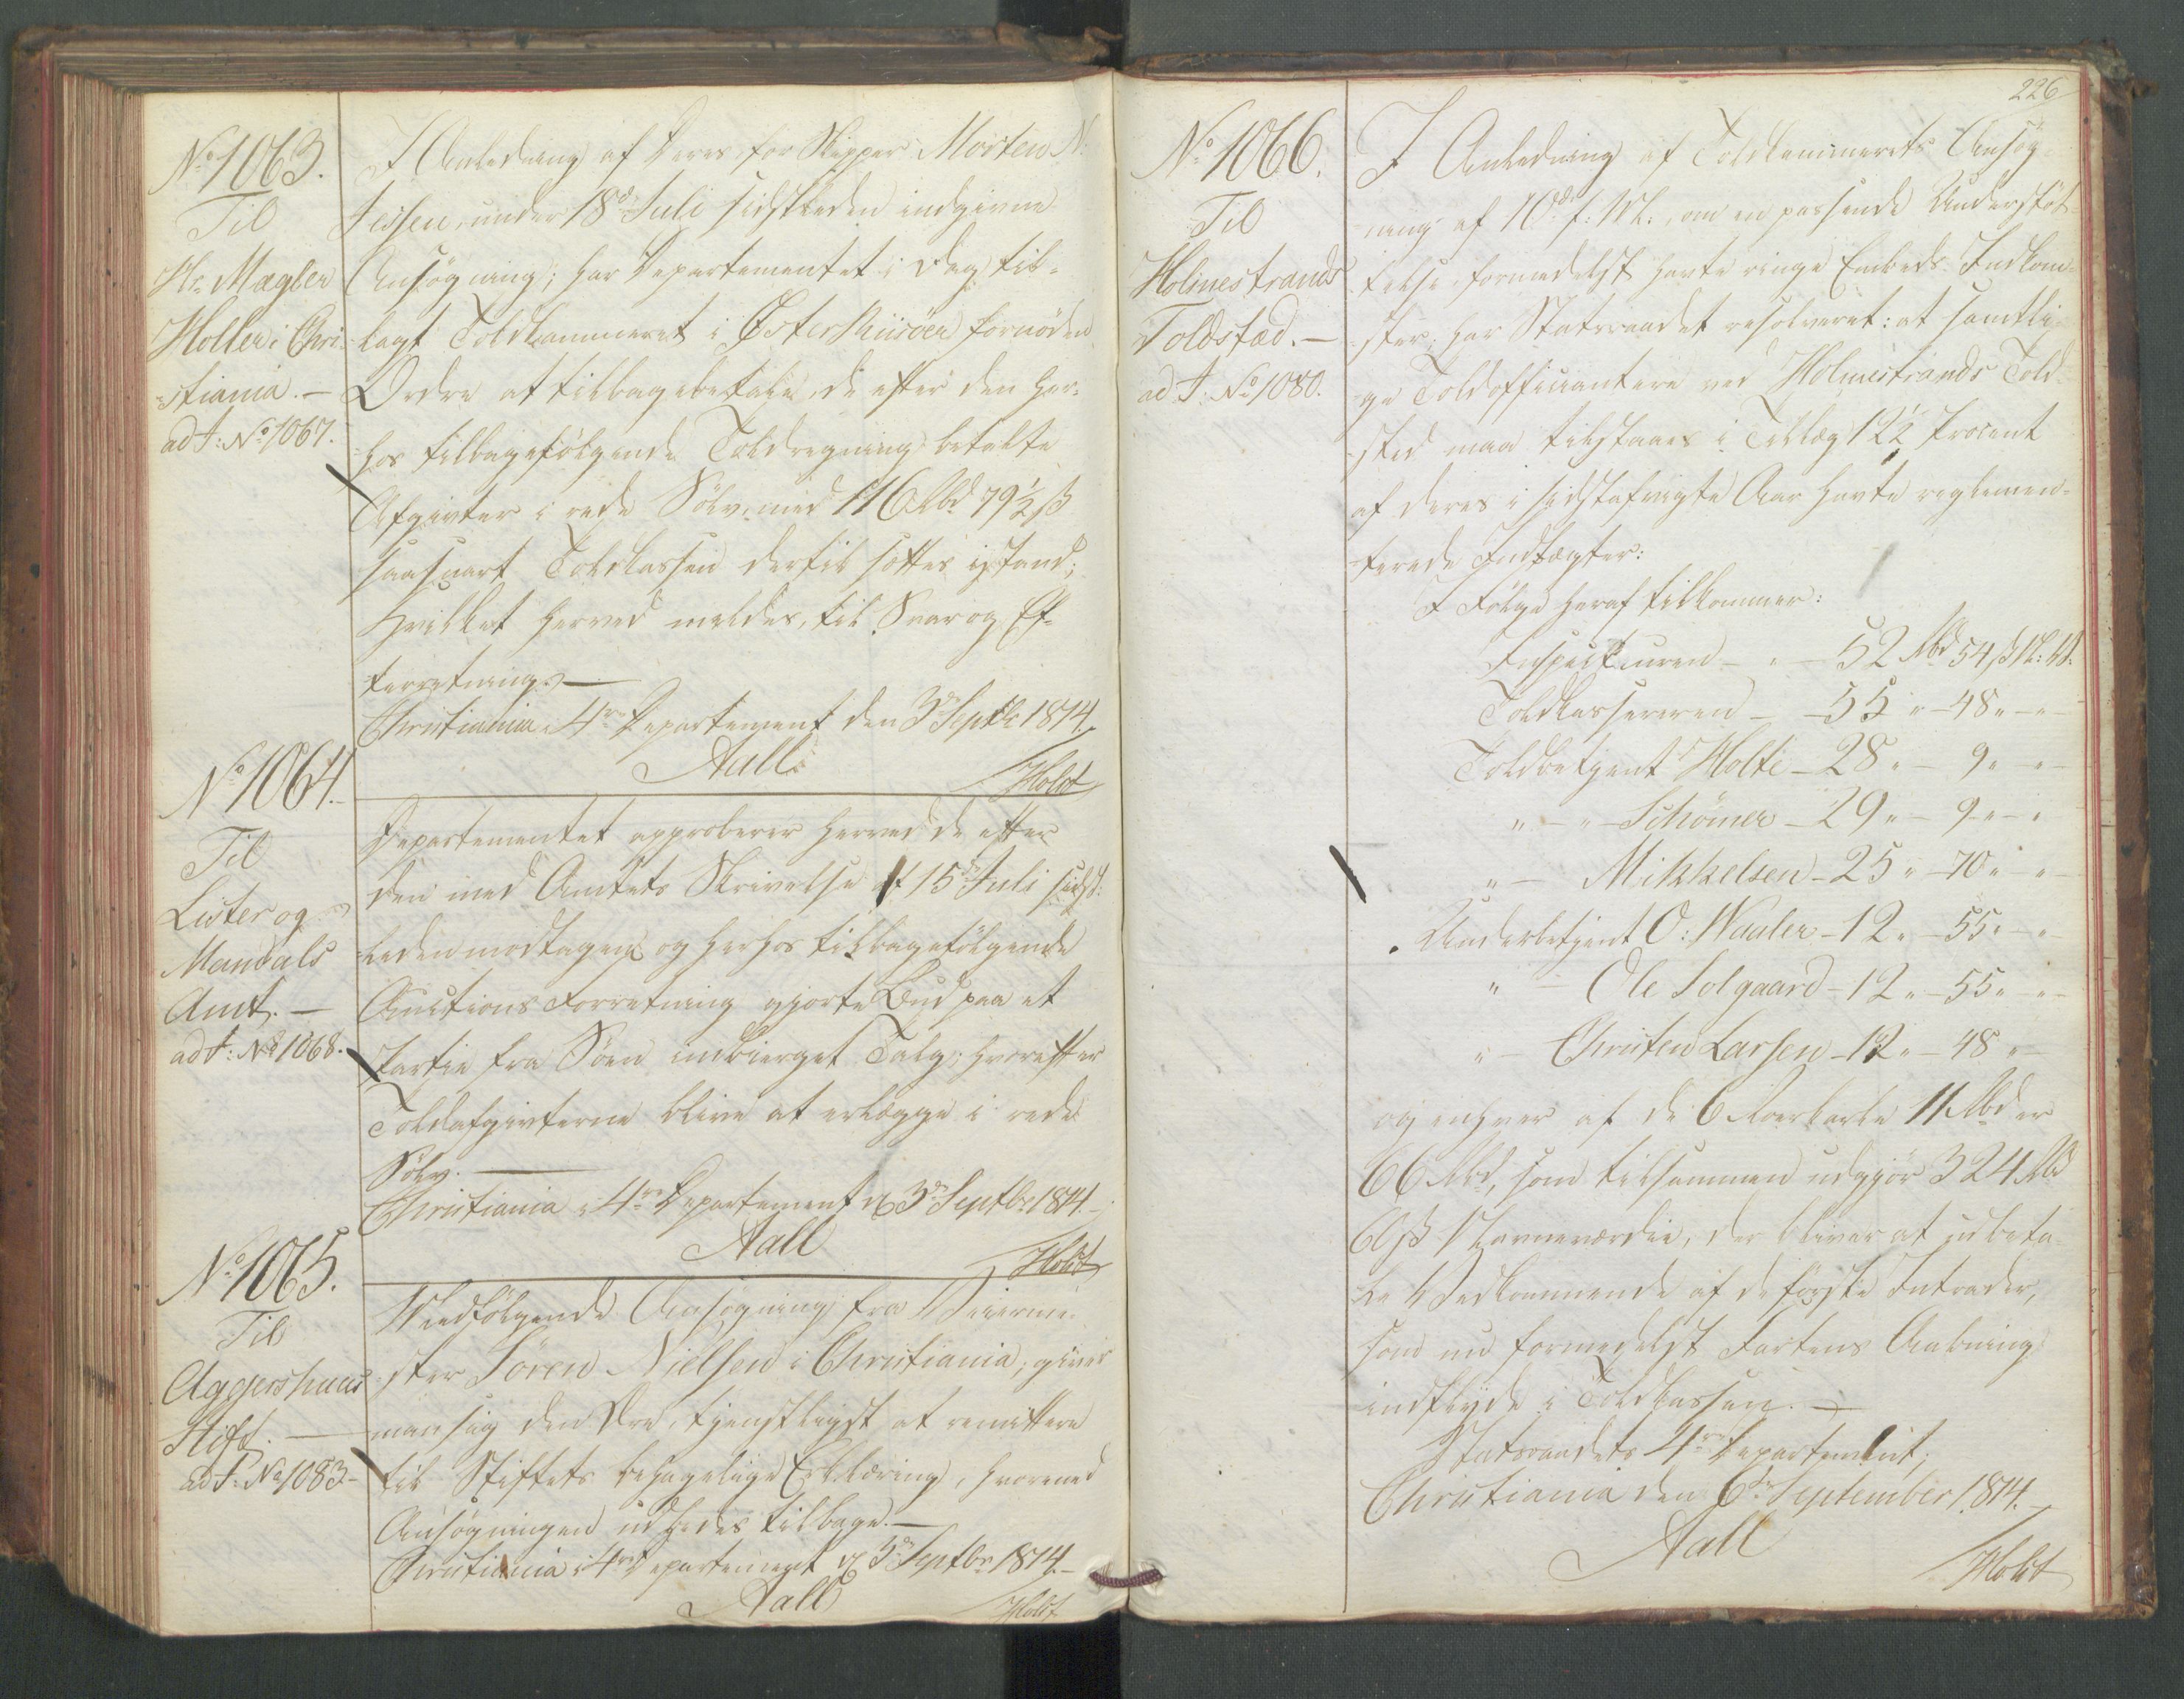 No 1063.
Til
Hr. Mægler
Møller i Chri-
stiania. —
ad J: No 1067.
I Anledning af Deres, for Skipper Morten N.
Jessen, under 18de Juli sidstleden indgivne
Ansøgning; har Departementet i Dag til-
lagt Toldkammeret i Østerriisöer fornøden
Ordre at tilbagebetale, de efter den her-
hos tilbagefølgende Toldregning betalte
Afgivter i rede Sölv, med 116 Rbd 79½ ß
saasnart Toldkassen dertil sættes istand;
Hvilket herved meldes, til Svar og Ef-
terretning. —
Christiania i 4de Departement den 3de Septbr 1814.
Aall
Holst
No 1064.
Til
Lister og
Mandals
Amt. —
ad J: No 1068.
Departementet approberer herved de efter
den med Amtets Skrivelse af 15de Juli sidst-
leden modtagne og herhos tilbagefølgende
Auctions Forretning gjorte Bud paa et
Partie fra Söen indbierget Talg; hvorefter
Toldafgivterne blive at erlægge i rede
Sölv. —
Christiania i 4de Departement d. 3de Septbr 1814. —
Aall
Holst
No 1065.
Til
Aggershuus
Stift. —
ad J: No 1083. —
Medfølgende Ansøgning fra
ster Sören Nielsen i Christiania, giver
man sig den Ære, tjenstligst at remittere
til Stiftets behagelige Erklæring, hvormed
Ansøgningen udbedes tilbage. —
Christiania i 4de Departement d. 3de Septbr 1814. —
Aall
Holst
226
No 1066.
Til
Holmestrands
Toldsted. —
ad J: No 1080.
I Anledning af Toldkammerets Ansøg-
ning af 16de f: M:, om en passende Understøt-
telse formedelst havte ringe Embeds Indkom-
ster, har Statsraadet resolveret: at samtli-
ge Toldofficianterne ved Holmestrands Told-
sted maa tilstaaes i Tillæg 12½ Procent
af deres i sidstafvigte Aar havte reglemen-
terede Indtægter:
I Følge heraf tilkommer:
Inspecteuren — " — 52 Rbd 54 ß N: V:
Toldkassereren — 55 " — 48 " — "
Toldbetjent Holte — 28 " — 9 " — "
" — " — Schömer — 29 " — 9 " — "
" — Mikkelsen — 25 " — 70 " — "
Underbetjent O: Waaler — 12 " — 55 " — "
" — Ole Solgaard — 12 " — 55 " — "
" — Christen Larsen — 12 " — 48 " —
og enhver af de 6 Roerkarle 11 Rbd er
66 Rbd, som tilsammen udgjør 324 Rbd
60 ß Navneværdie, der bliver at udbeta-
le Vedkommende af de første Intrader,
som nu formedelst Fartens Aabning
indflyde i Toldkassen. —
Statsraadets 4de Departement;
Christiania den 6te September 1814. —
Aall
Holst